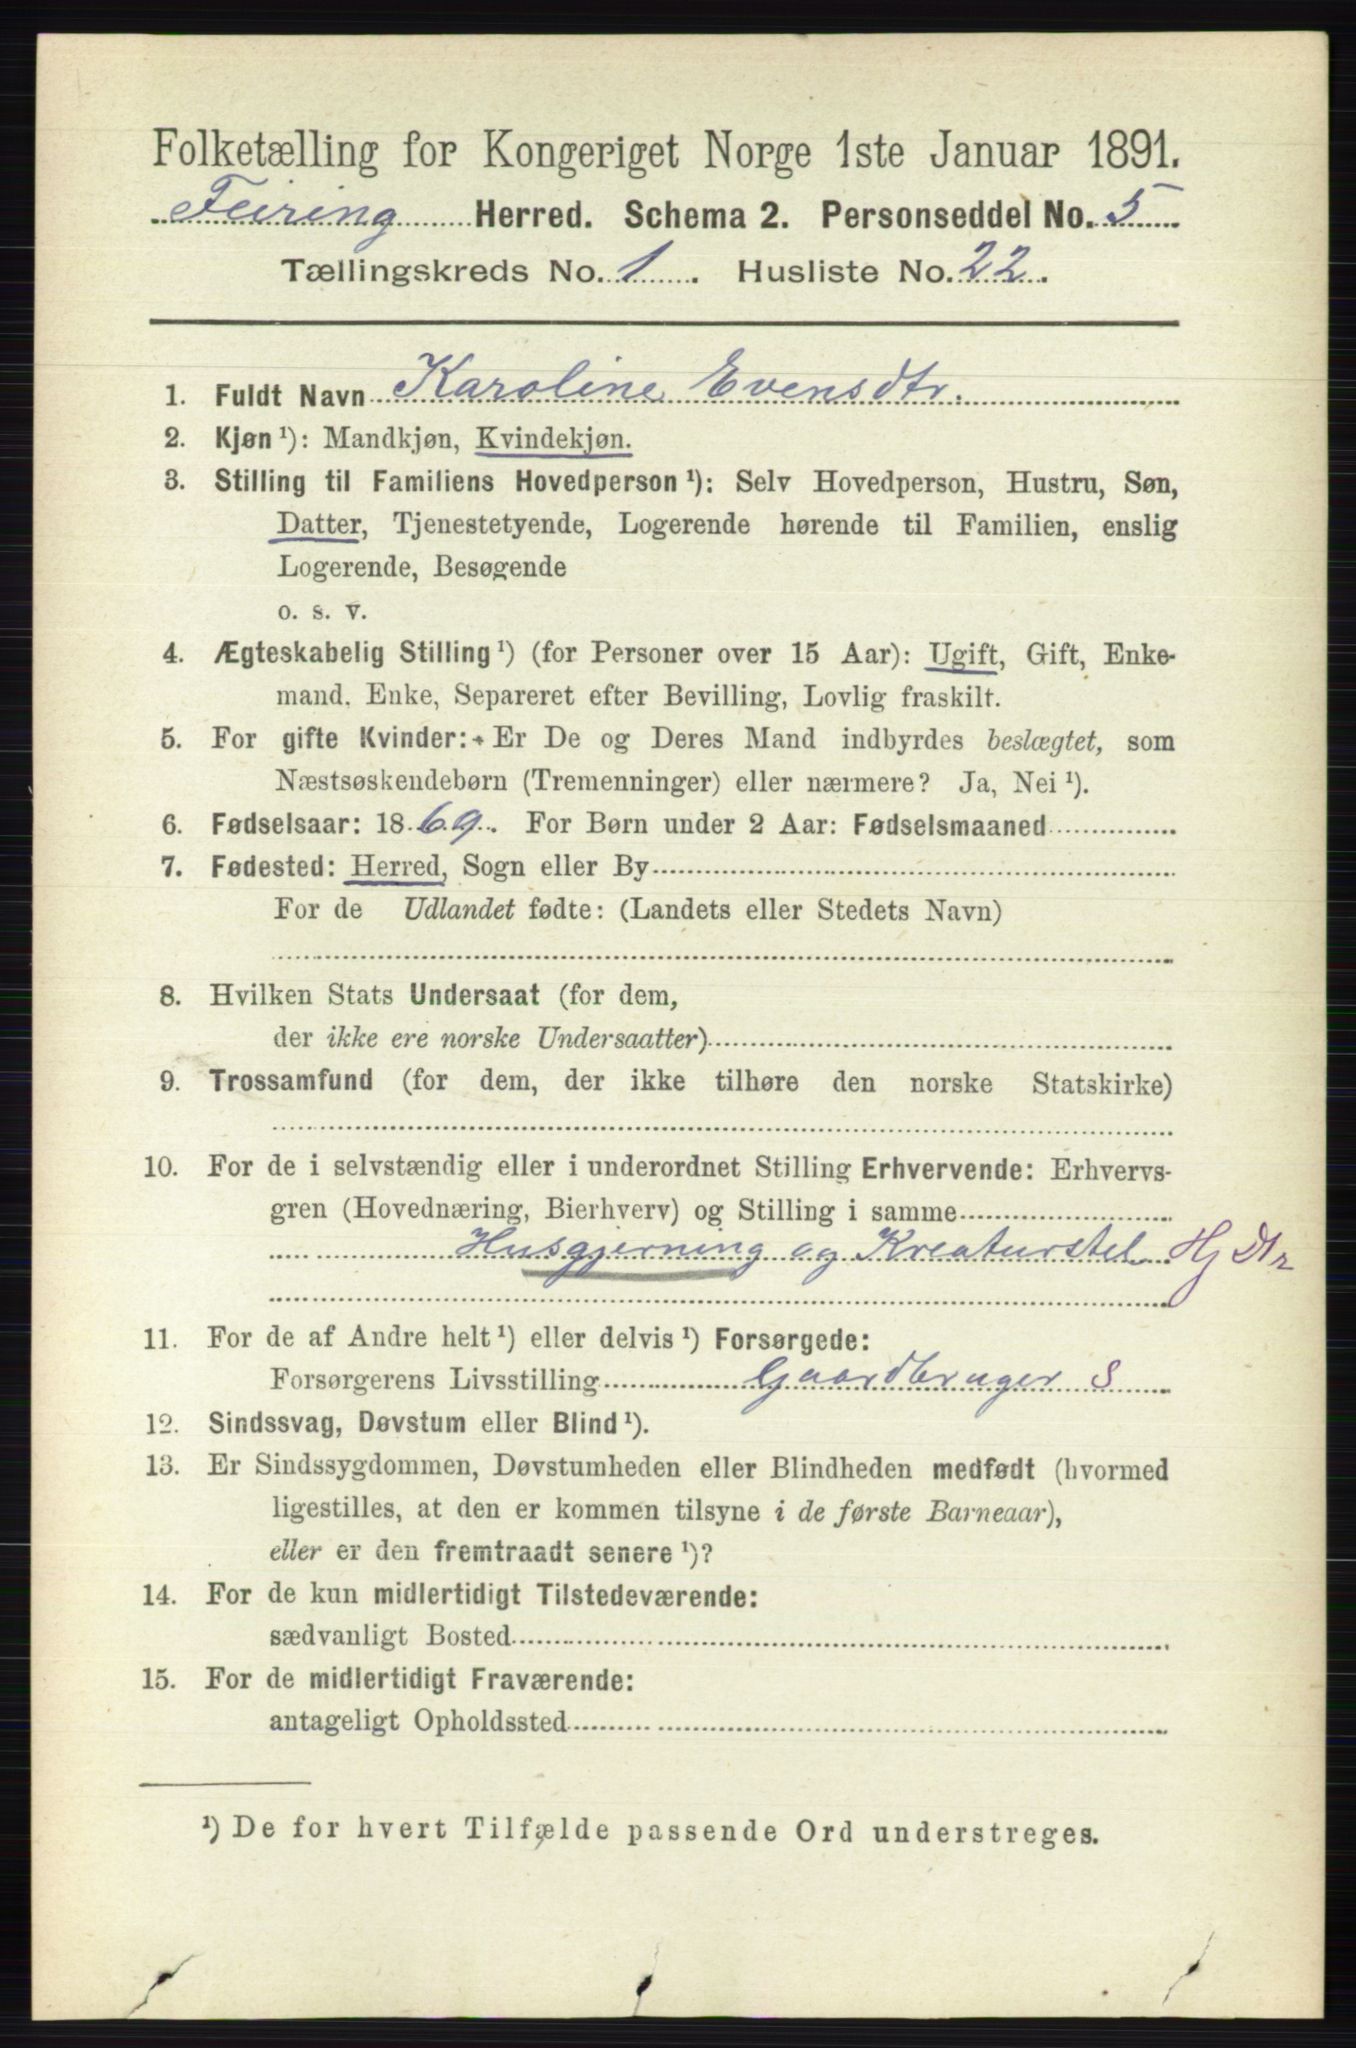 Folketælling for Kongeriget Norge 1ste Januar 1891.
Feiring Herred. Schema 2. Personseddel No. 5
Tællingskreds No. 1. Husliste No. 22.
1. Fuldt Navn Karoline Evensdtr.
2. Kjøn ¹): Mandkjøn, Kvindekjøn.
3. Stilling til Familiens Hovedperson ¹): Selv Hovedperson, Hustru, Søn,
Datter, Tjenestetyende, Logerende hørende til Familien, enslig
Logerende, Besøgende
o. s. v.
4. Ægteskabelig Stilling ¹) (for Personer over 15 Aar): Ugift, Gift, Enke-
mand, Enke, Separeret efter Bevilling, Lovlig fraskilt.
5. For gifte Kvinder: Er De og Deres Mand indbyrdes beslægtet, som
Næstsøskendebørn (Tremenninger) eller nærmere? Ja, Nei ¹).
6. Fødselsaar: 1869. For Børn under 2 Aar: Fødselsmaaned
7. Fødested: Herred, Sogn eller By
For de Udlandet fødte: (Landets eller Stedets Navn)
8. Hvilken Stats Undersaat (for dem,
der ikke ere norske Undersaatter)
9. Trossamfund (for dem, der ikke tilhøre den norske Statskirke)
10. For de i selvstændig eller i underordnet Stilling Erhvervende: Erhvervs-
gren (Hovednæring, Bierhverv) og Stilling i samme
Husgjerning og Kreaturstel Hj Dtr
11. For de af Andre helt ¹) eller delvis ¹) Forsørgede:
Forsørgerens Livsstilling Gaardbruger S
12. Sindssvag, Døvstum eller Blind ¹).
13. Er Sindssygdommen, Døvstumheden eller Blindheden medfødt (hvormed
ligestilles, at den er kommen tilsyne i de første Barneaar),
eller er den fremtraadt senere ¹)?
14. For de kun midlertidigt Tilstedeværende:
sædvanligt Bosted
15. For de midlertidigt Fraværende:
antageligt Opholdssted
¹) De for hvert Tilfælde passende Ord understreges.